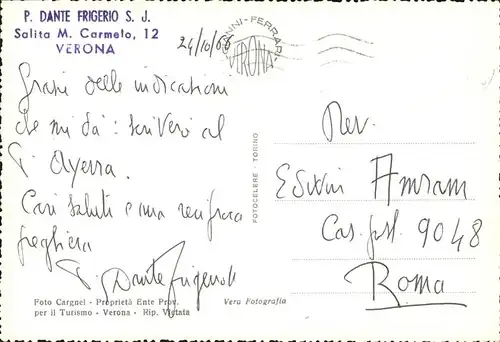 P. DANTE FRIGERIO S. J.
Salita M. Carmelo, 12
VERONA
24/10/66
GIANNI-FERRARI
VERONA
Grazie delle indicazioni
che mi dà: scriverò al
P. Ayerra.
Cari saluti e una reciproca
preghiera
P. Dante Frigerio
Foto Cargnel - Proprietà Ente Prov.
per il Turismo - Verona - Rip. Vietata
Vera Fotografia
FOTOCELERE - TORINO
Rev.
Edwin Amram
Cas. post. 9048
Roma